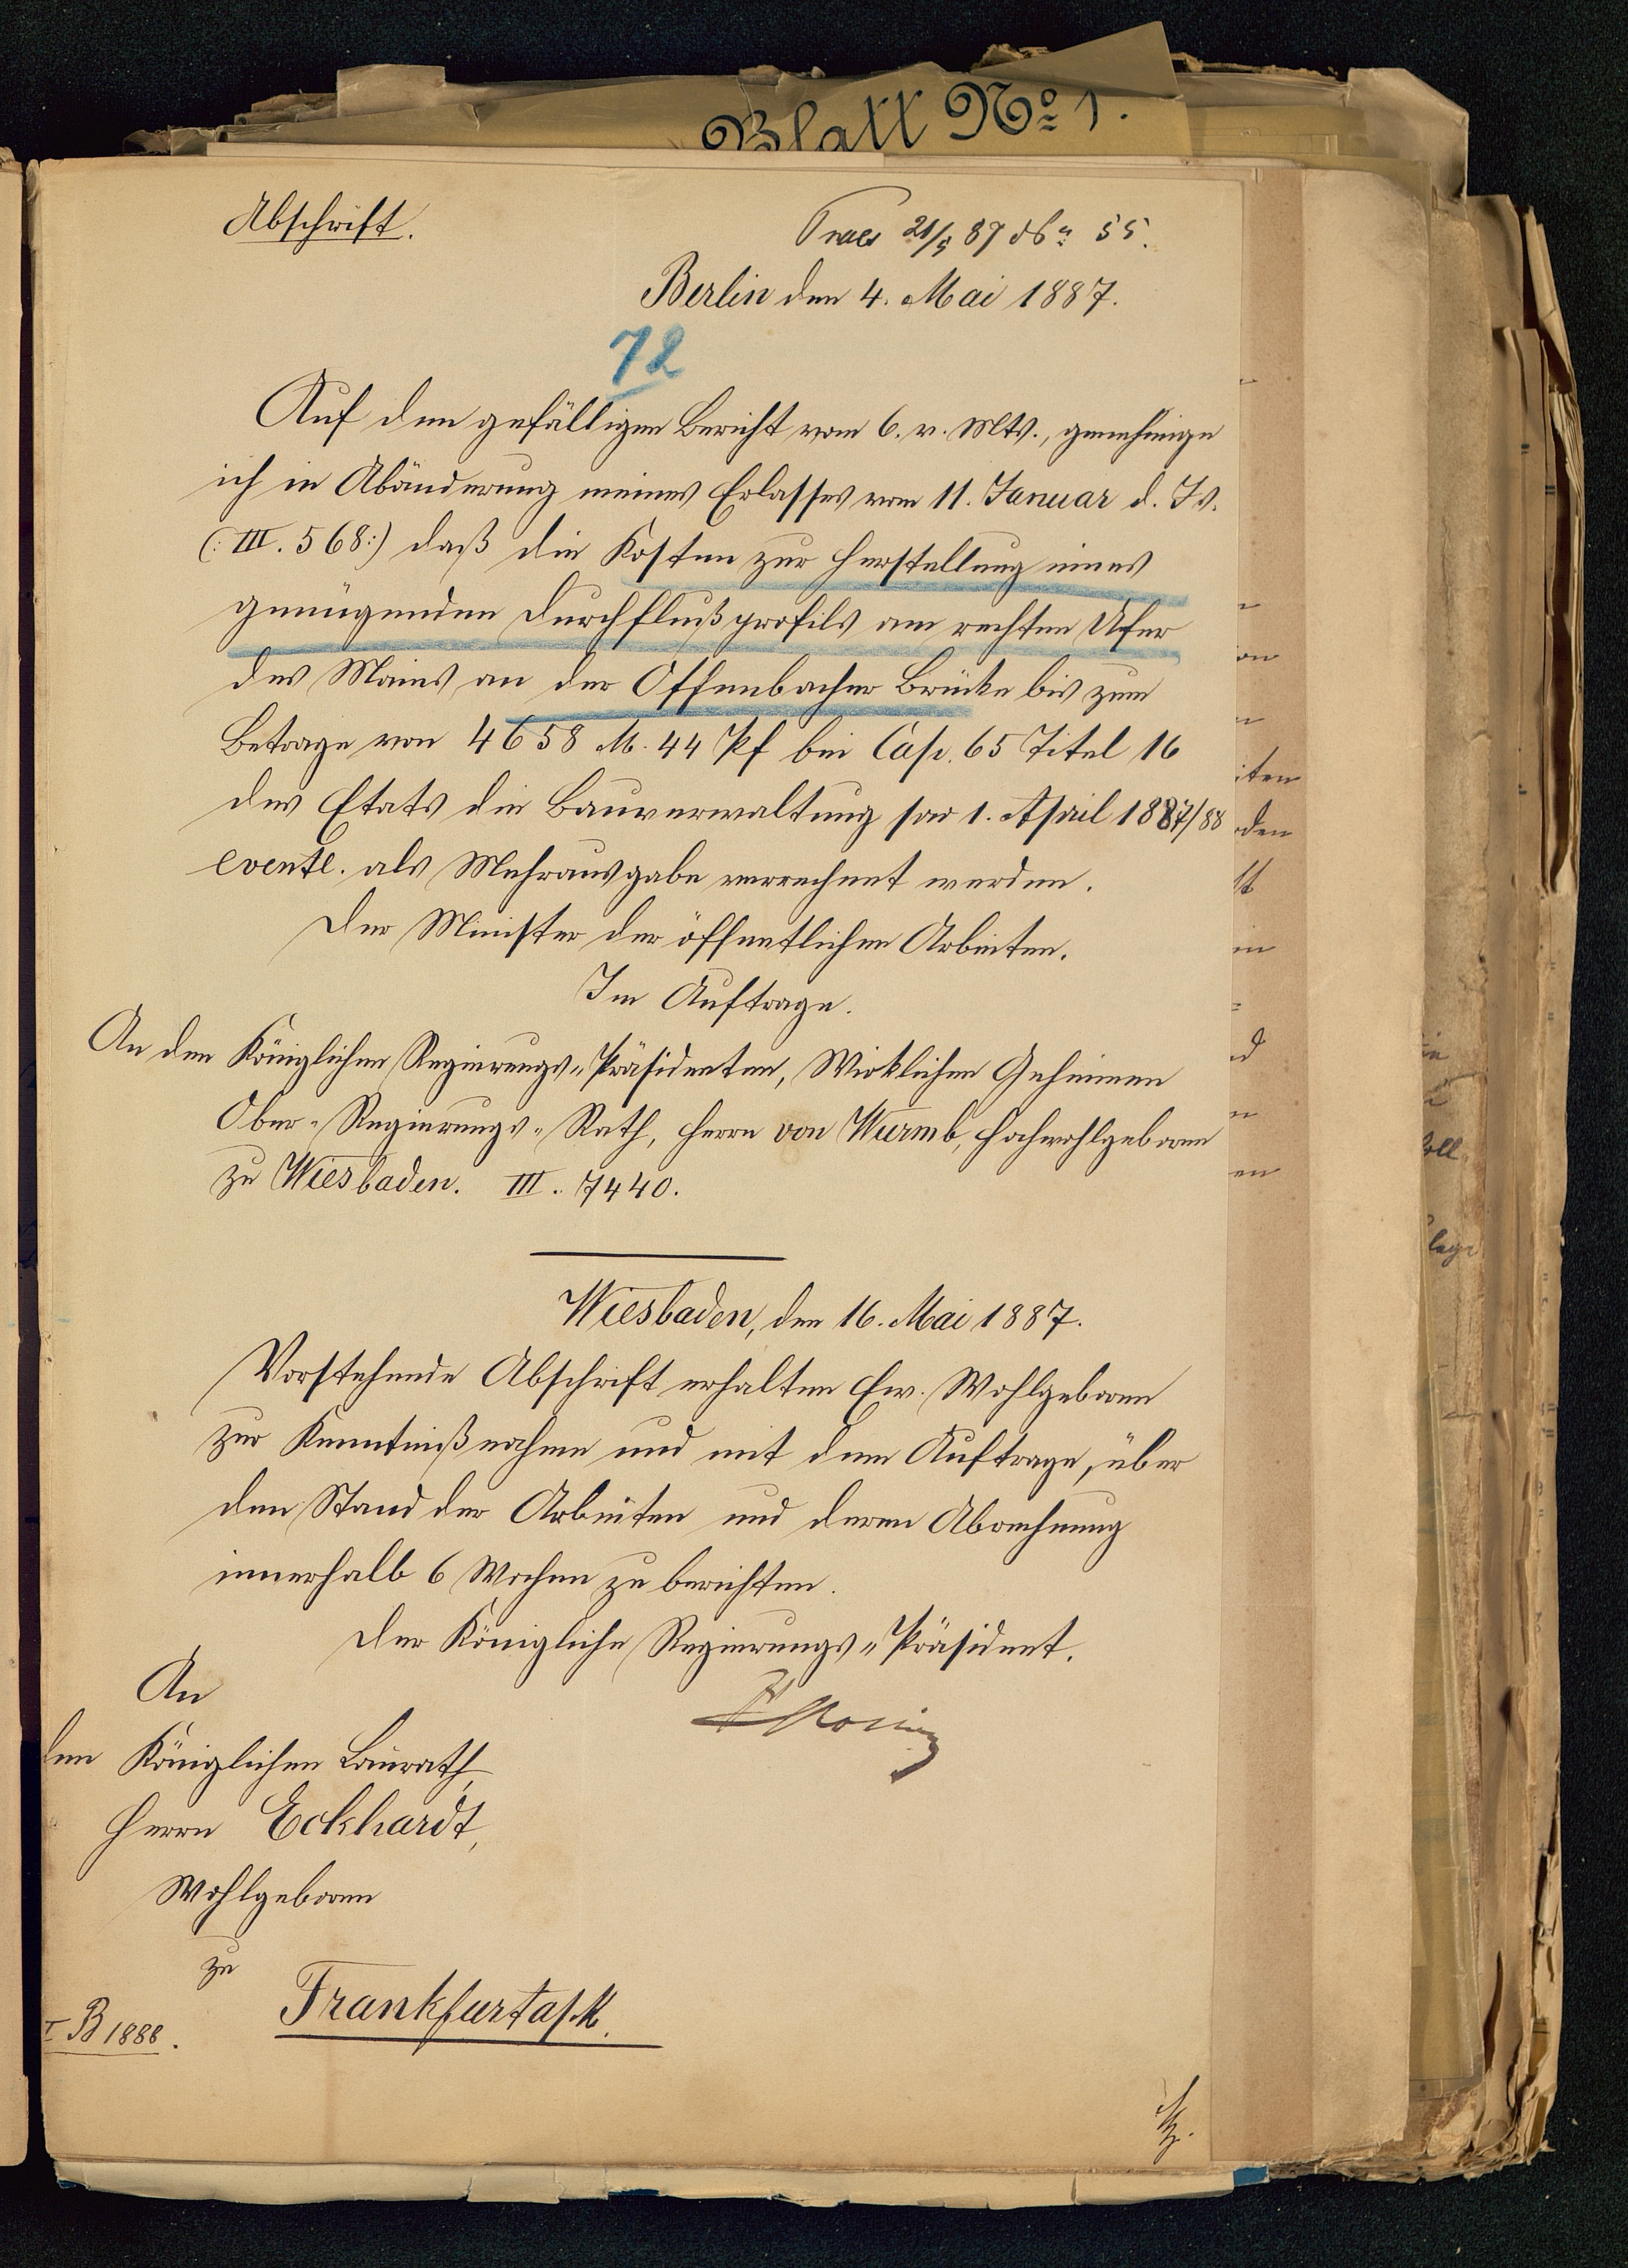 Blatt No 1.
Abschrift.
Praes 21/5 87 55.
Berlin den 4. Mai 1887.
72
Auf den gefälligen Bericht vom 6. v. Mts., genehmige
ich in Abänderung meines Erlasses vom 11. Januar d. Js.
(: III. 568:) daß die Kosten zur Herstellung eines
genügenden Durchflußprofils am rechten Ufer
des Mains an der Offenbacher Brücke bis zum
Betrage von 4658 M. 44 Pf bei Cap. 65 Titel 16
des Etats die Bauverwaltung pro 1. April 1887/88
eventl. als Mehrausgabe verrechnet werden.
Der Minister der öffentlichen Arbeiten.
Im Auftrage.
An den Königlichen Regierungs-Präsidenten, Wirklichen Geheimen
Ober-Regierungs-Rath, Herrn von Wurmb, Hochwohlgeboren
zu Wiesbaden. III. 7440.
Wiesbaden, den 16. Mai 1887.
Vorstehende Abschrift erhalten Ew. Wohlgeboren
zur Kenntnißnahme und mit dem Auftrage, über
den Stand der Arbeiten und deren Abrechnung
innerhalb 6 Wochen zu berichten.
Der Königliche Regierungs-Präsident.
An
den Königlichen Baurath
Herrn Eckhardt,
Wohlgeboren
zu
Frankfurt a/M.
I B 1888.